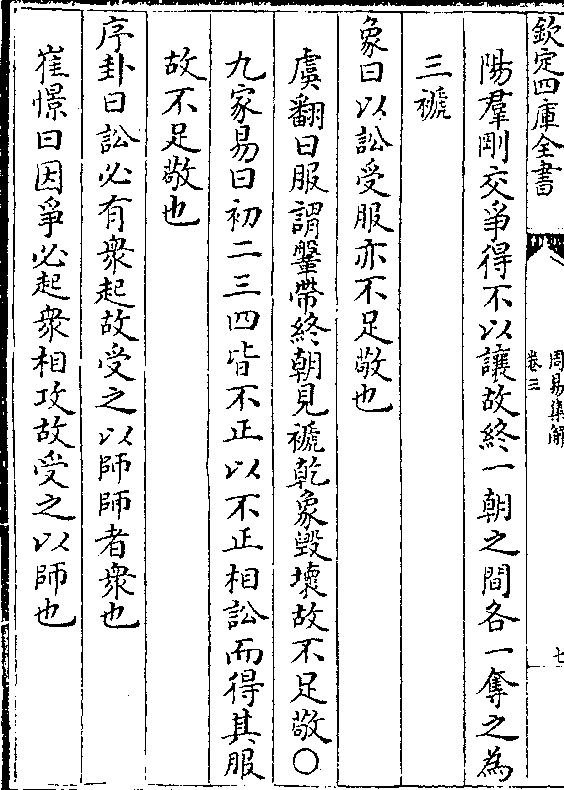 欽定四庫全書
周易集解
卷三
七
陽羣剛交爭得不以讓故終一朝之間各一奪之為
三褫
象曰以訟受服亦不足敬也
虞翻曰服謂鞶帶終朝見褫乾象毀壞故不足敬〇
九家易曰初二三四皆不正以不正相訟而得其服
故不足敬也
序卦曰訟必有衆起故受之以師師者衆也
崔憬曰因爭必起衆相攻故受之以師也